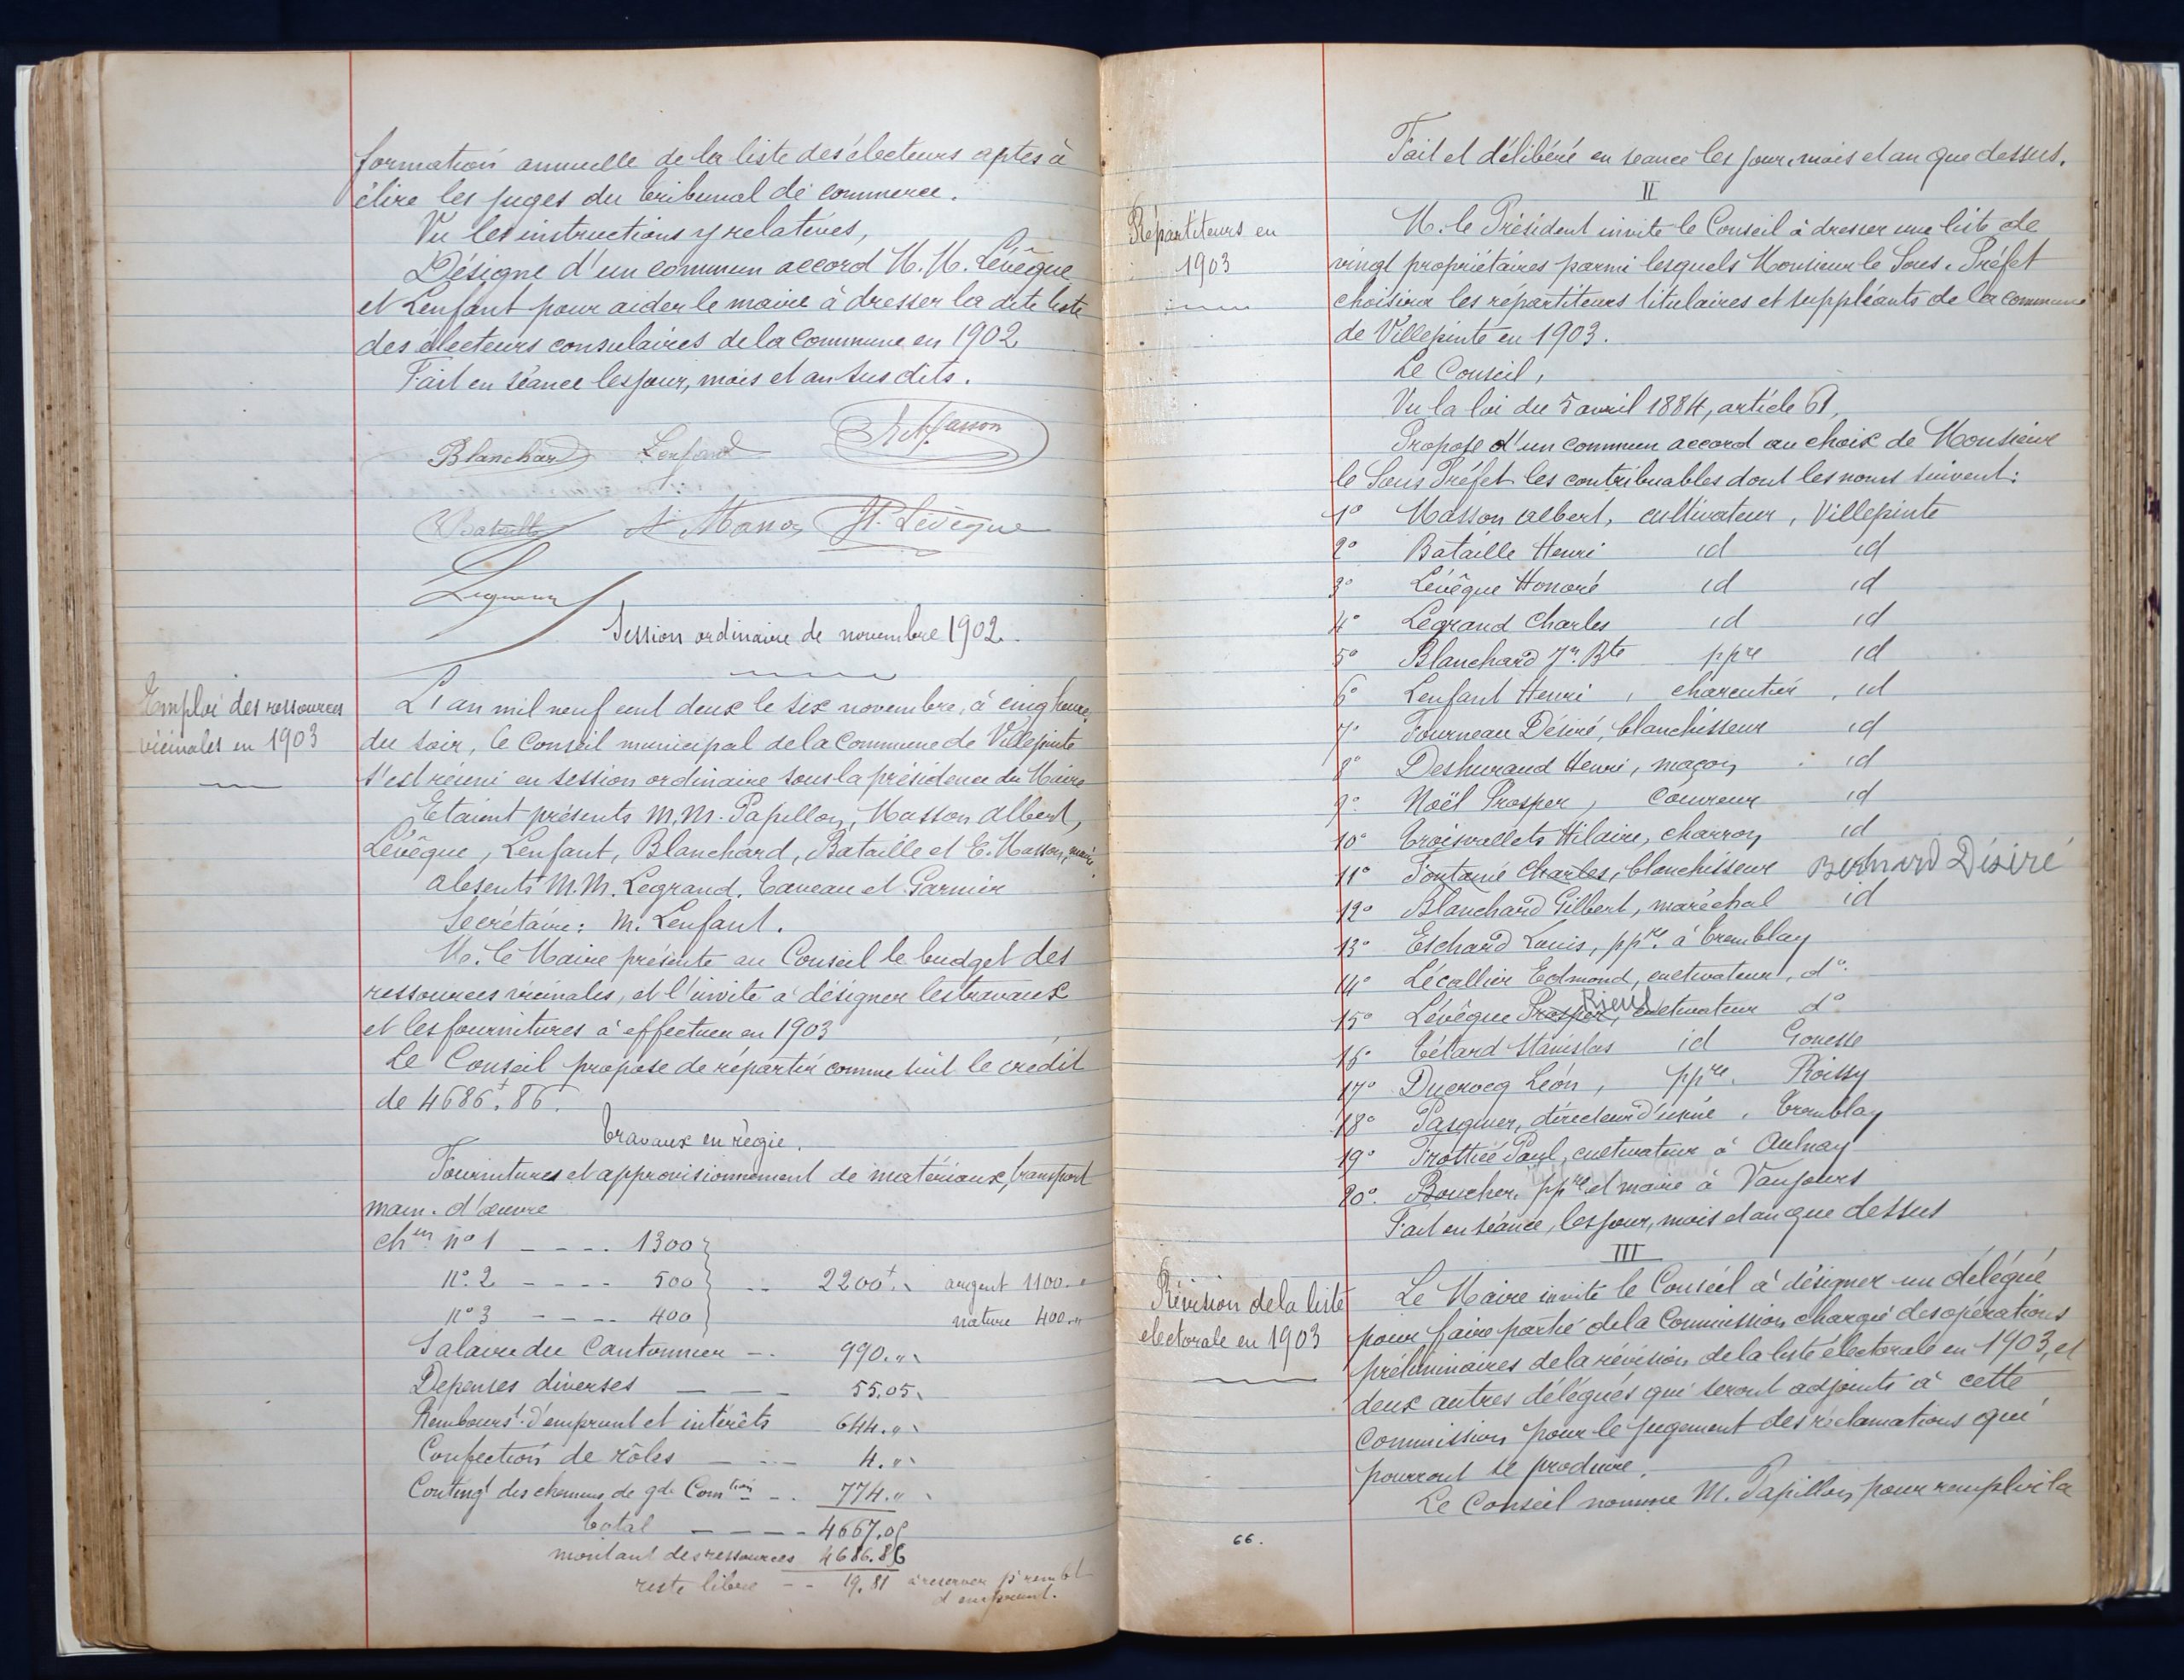 formation annuelle de la liste des électeurs aptes à
élire les juges du tribunal de commerce.
Vu les instructions y relatives,
Désigne d'un commun accord M. M. Lévêque
et Lenfant pour aider le maire à dresser la dite liste
des électeurs consulaires de la commune en 1902
Fait en séance les jour, mois et an sus dits.
Blanchard Lenfant Masson
Bataille Masson H. Lévêque
Session ordinaire de novembre 1902.
Emploi des ressources
vicinales en 1903
L'an mil neuf cent deux le six novembre, à cinq heures
du soir, le Conseil municipal de la Commune de Villepinte
s'est réuni en session ordinaire sous la présidence du Maire
Etaient présents M. M. Papillon, Masson Albert,
Lévêque, Lenfant, Blanchard, Bataille et E. Masson, maire.
Absents M. M. Legrand, Taveau et Garnier
Secrétaire: M. Lenfant.
M. le Maire présente au Conseil le budget des
ressources vicinales, et l'invite à désigner les travaux
et les fournitures à effectuer en 1903
Le Conseil propose de répartir comme suit le crédit
de 4686f.86.
Travaux en régie.
Fournitures et approvisionnement de matériaux, transport
main-d'œuvre
chin no 1 - - - - 1300
No. 2 - - - - 500 - - 2200f." argent 1100."
No 3 - - - - 400 nature 400."
Salaire du Cantonnier - . 990."
Dépenses diverses - - - 55.05
Rembourst. d'emprunt et intérêts 644."
Confection de rôles - - - 4."
Contingt des chemins de gde Comtion - . 774."
Total - - - - 4667.05
montant des ressources 4686.86
reste libre - - 19.81 à réserver pr rembt
d'emprunt.
Fait et délibéré en séance les jour, mois et an que dessus.
II
Répartiteurs en
1903
M. le Président invite le Conseil à dresser une liste de
vingt propriétaires parmi lesquels Monsieur le Sous-Préfet
choisira les répartiteurs titulaires et suppléants de la commune
de Villepinte en 1903.
Le Conseil,
Vu la loi du 5 avril 1884, article 61,
Propose d'un commun accord au choix de Monsieur
le Sous Préfet les contribuables dont les noms suivent:
1o Masson Albert, cultivateur, Villepinte
2o Bataille Henri id id
3o Lévêque Honoré id id
4o Legrand Charles id id
5o Blanchard Jn. Bte ppre id
6o Lenfant Henri, charcutier, id
7o Fourneau Désiré, blanchisseur id
8o Deshurand Henri, maçon id
9o Noël Prosper, couvreur id
10o Troisvallets Hilaire, charron id
11o Fontaine Charles, blanchisseur Bernard Désiré
12o Blanchard Gilbert, maréchal id
13o Eschard Louis, ppre. à Tremblay
14o Lécallier Edmond, cultivateur, do.
15o Lévêque Prosper, Rieul cultivateur do
16o Tétard Stanislas id Gonesse
17o Ducrocq Léon, ppre. Roissy
18o Pasquier, directeur d'usine, Tremblay
19o Frottiée Paul, cultivateur à Aulnay
20o. Boucher, ppre et maire à Vaujours
Fait en séance, les jour, mois et an que dessus
III
Révision de la liste
électorale en 1903
Le Maire invite le Conseil à désigner un délégué
pour faire partie de la Commission chargée des opérations
préliminaires de la révision de la liste électorale en 1903, et
deux autres délégués qui seront adjoints à cette
commission pour le jugement des réclamations qui
pourront se produire.
Le Conseil nomme M. Papillon pour remplir la
66.